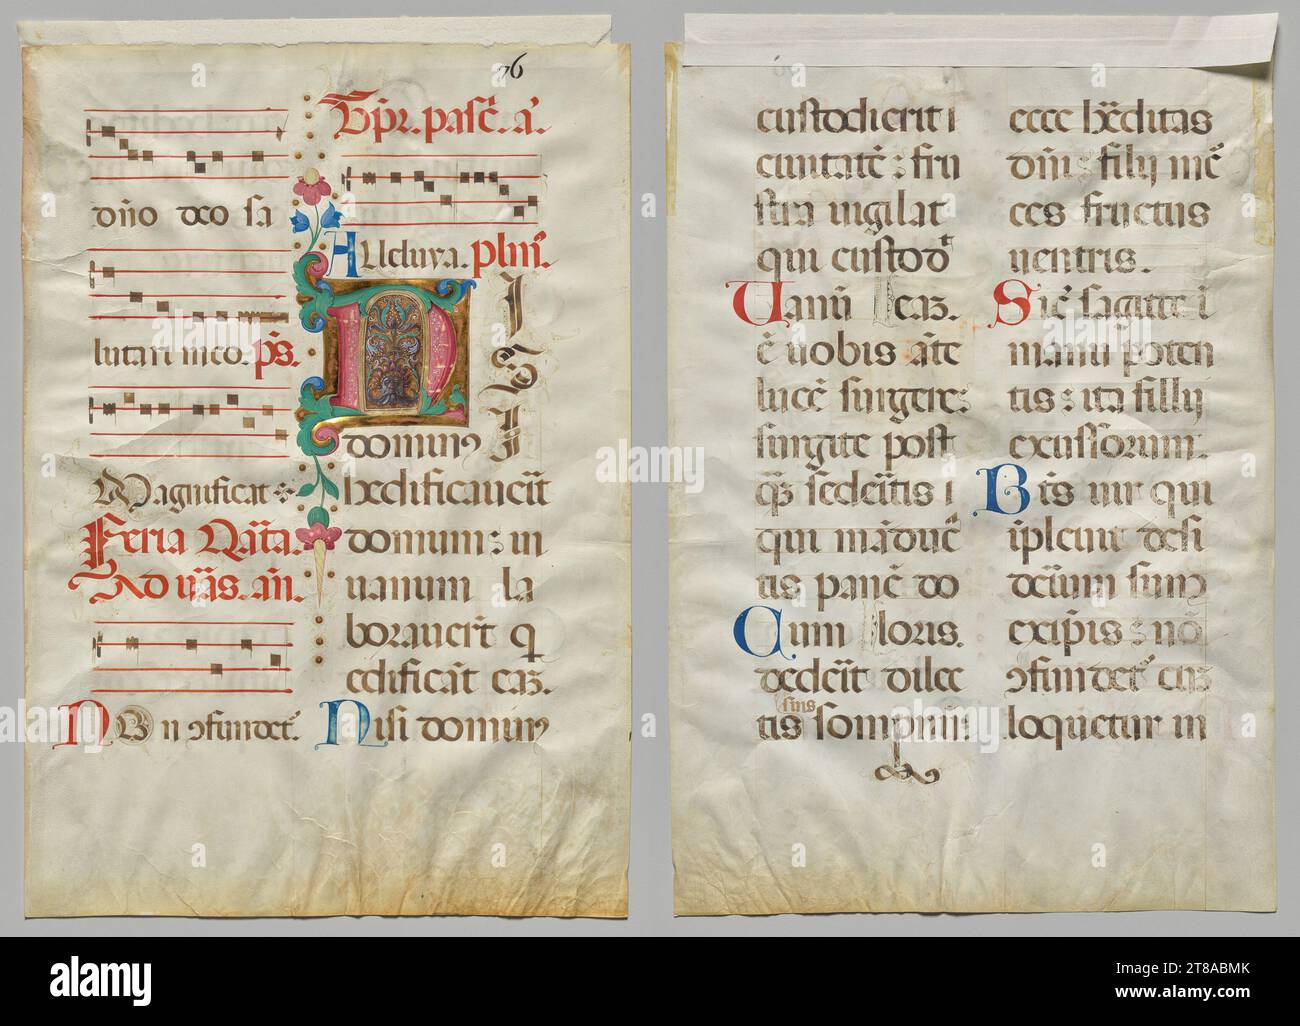 76
dn̄o deo sa
lutari meo. p̄s.
Magnificat
Feria Quarta.
Ad v̄as. an̄.
Non ɔfundet᷑.
Tp̄r. pasc̄. a.
Alleluya. plm̄.
NISI
domin9
hedificaverit
domum: in
vanum la
boraverūt q
edificāt eaz.
Nisi domin9
custodierit i
civitatē: fru
stra vigilat
qui custodit
Vanū ē eaz.
ē vobis ate
lucē surgere:
surgite post
q̄z sederitis i
qui māduc
tis panē do
Cum loris.
dederit dilec
tis suis somnum:
ecce hereditas
dn̄i: filij mer
ces fructus
ventris.
Sic̄ sagitte i
manu poten
tis: ita filij
excussorum.
Btūs vir qui
iplevit desi
derium suum
ex ip̄is: nō
ɔfundet᷑ cuz
loquetur in
a
alamy
Image ID: 2T8ABMK
www.alamy.com